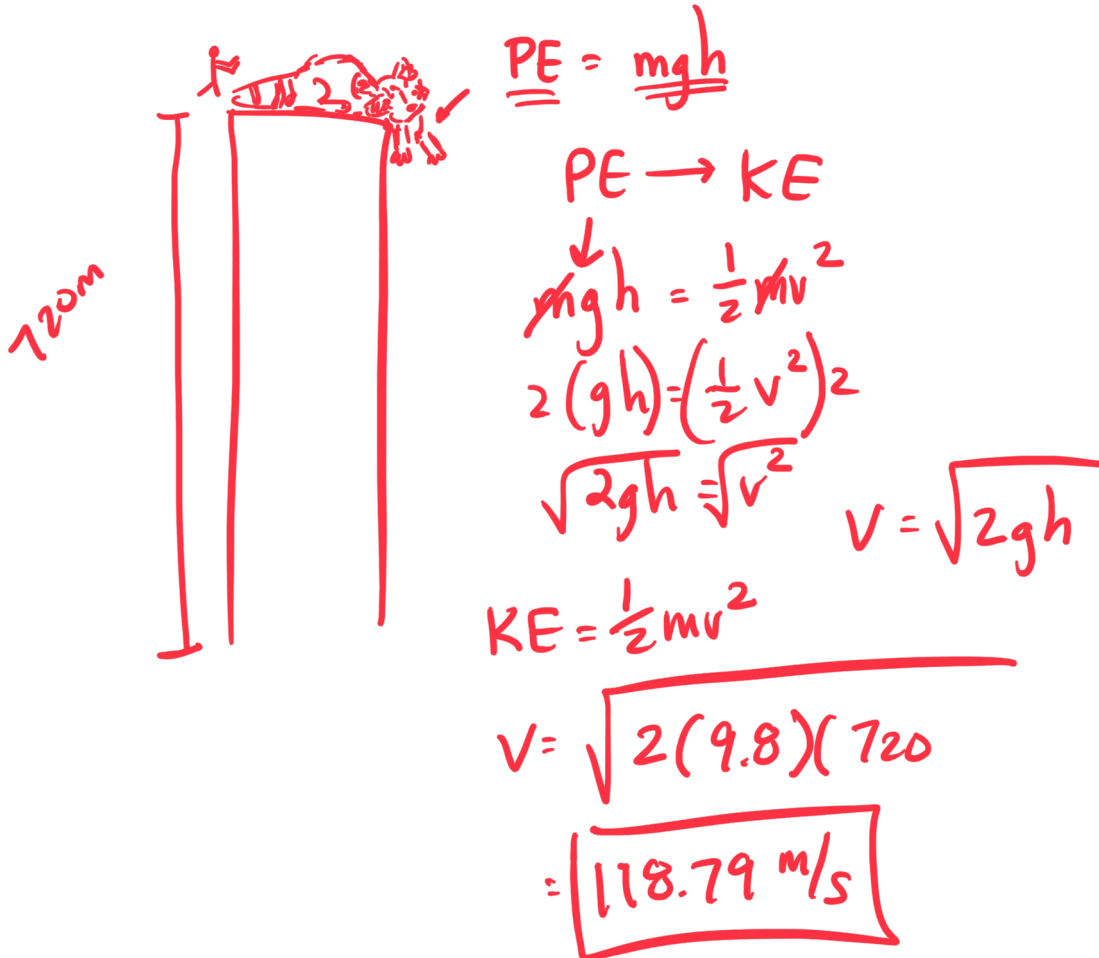 720m
PE = mgh
PE → KE
mgh = 1/2 mv²
2(gh)=(1/2 v²)2
√2gh = √v²
V = √2gh
KE = 1/2 mv²
V = √2(9.8)(720
= 118.79 m/s